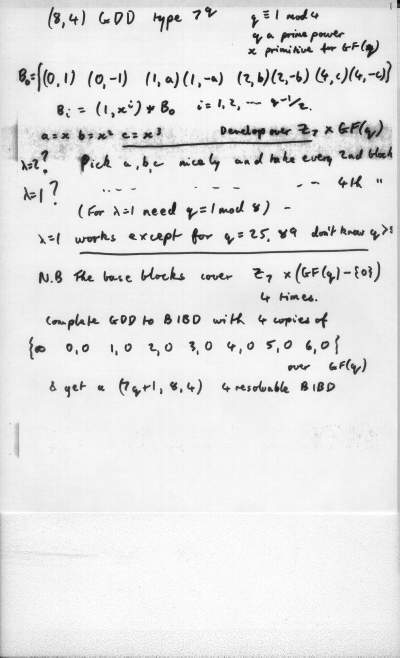 (8,4) GDD type 7^q q ≡ 1 mod 4
q a prime power
x primitive for GF(q)
B₀={(0,1) (0,-1) (1,a)(1,-a) (2,b)(2,-b) (4,c)(4,-c)}
Bᵢ = (1,xⁱ) * B₀ i=1,2, --- q-1/2.
a=x b=x² c=x³ Develop over Z₇ x GF(q)
λ=2? Pick a,b,c nicely and take every 2nd block
λ=1? " --- --- -- 4th "
(For λ=1 need q=1 mod 8) -
λ=1 works except for q=25, 89 don't know q>
N.B The base blocks cover Z₇ x (GF(q)-{0})
4 times.
Complete GDD to BIBD with 4 copies of
{∞ 0,0 1,0 2,0 3,0 4,0 5,0 6,0}
over GF(q)
& get a (7q+1, 8, 4) 4 resolvable BIBD